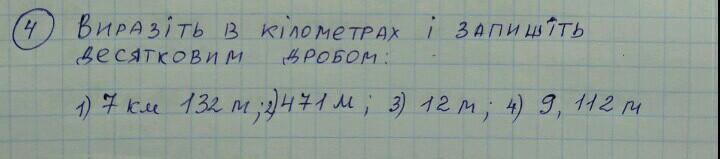 4 Виразіть в кілометрах і запишіть
десятковим дробом:
1) 7 км 132 м; 2) 471 м; 3) 12 м; 4) 9, 112 м